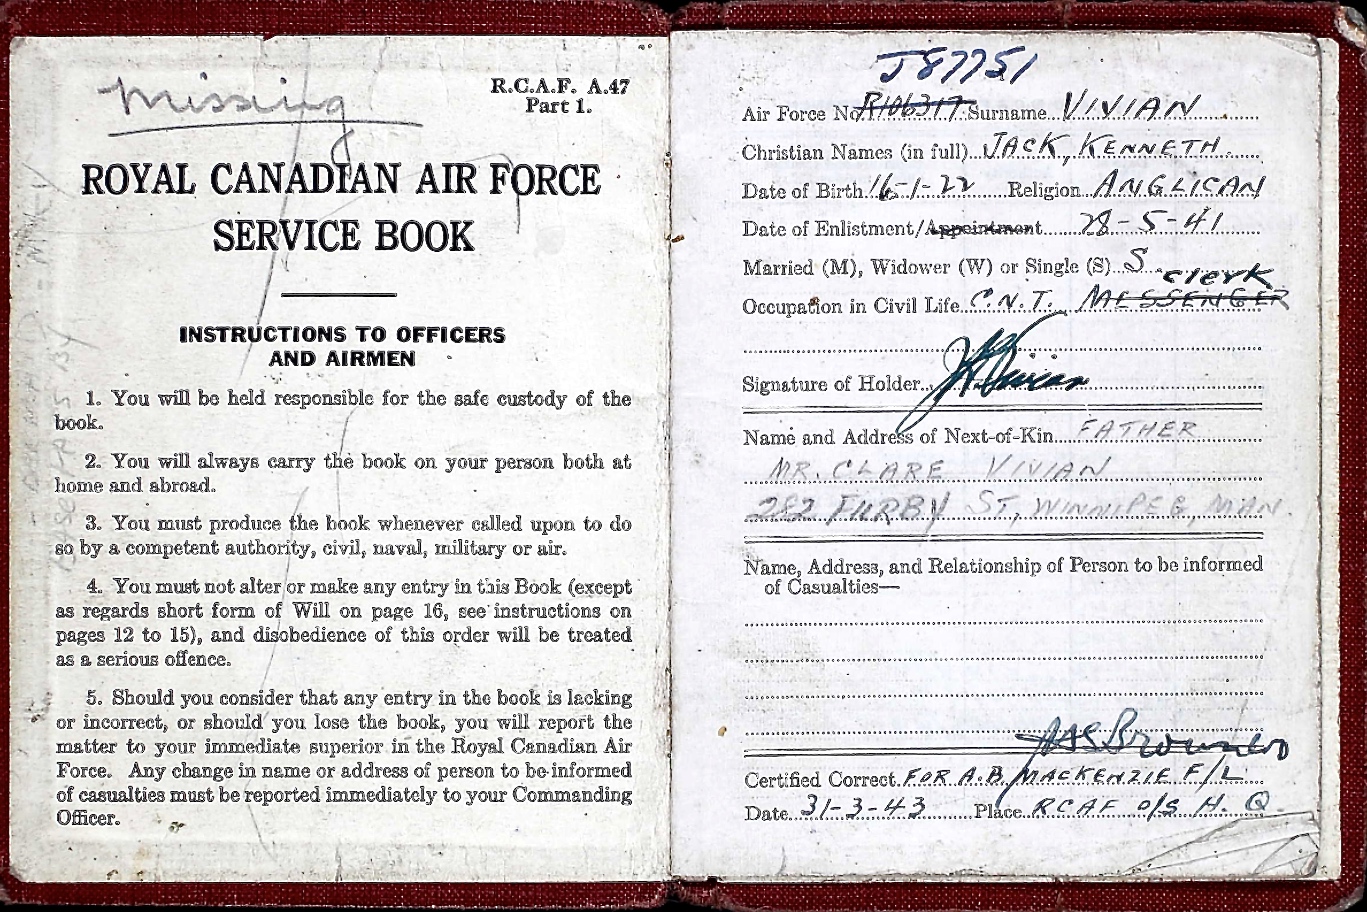 Missing
R.C.A.F. A.47
Part 1.
ROYAL CANADIAN AIR FORCE
SERVICE BOOK
INSTRUCTIONS TO OFFICERS
AND AIRMEN
1. You will be held responsible for the safe custody of the
book.
2. You will always carry the book on your person both at
home and abroad.
3. You must produce the book whenever called upon to do
so by a competent authority, civil, naval, military or air.
4. You must not alter or make any entry in this Book (except
as regards short form of Will on page 16, see instructions on
pages 12 to 15), and disobedience of this order will be treated
as a serious offence.
5. Should you consider that any entry in the book is lacking
or incorrect, or should you lose the book, you will report the
matter to your immediate superior in the Royal Canadian Air
Force. Any change in name or address of person to be informed
of casualties must be reported immediately to your Commanding
Officer.
J87751
Air Force No. R106317 Surname VIVIAN
Christian Names (in full) JACK, KENNETH
Date of Birth 16-1-22 Religion ANGLICAN
Date of Enlistment/Appointment 28-5-41
Married (M), Widower (W) or Single (S) S
clerk
Occupation in Civil Life C.N.T. MESSENGER
Signature of Holder JK Vivian
Name and Address of Next-of-Kin FATHER
MR. CLARE VIVIAN
282 FURBY ST, WINNIPEG, MAN.
Name, Address, and Relationship of Person to be informed
of Casualties—
Certified Correct FOR A.B. MACKENZIE F/L
Date 31-3-43 Place RCAF O/S H.Q.